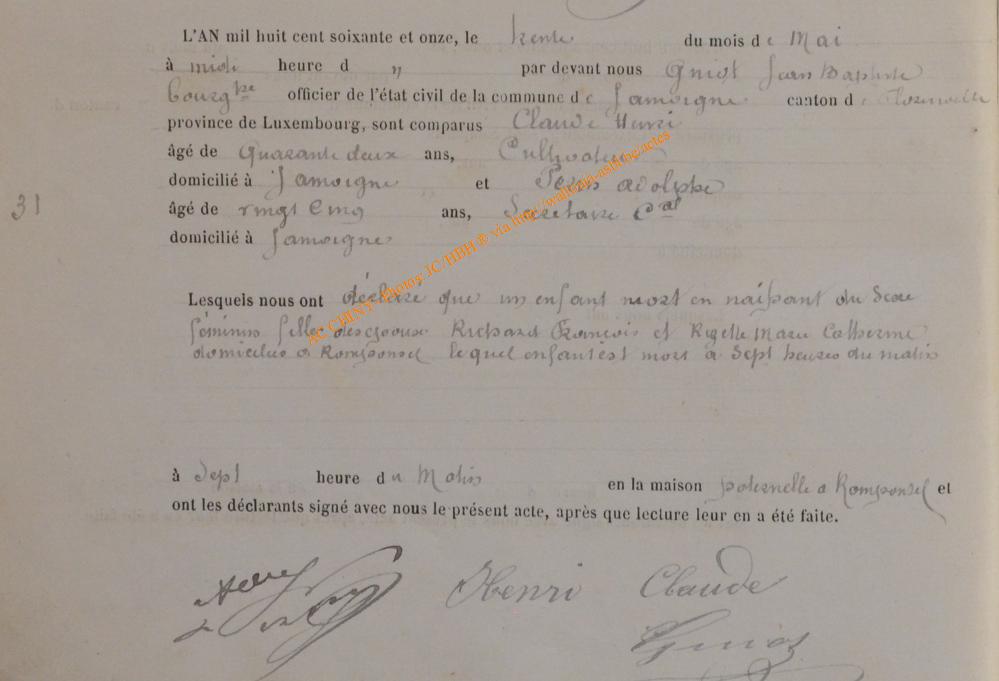 L'AN mil huit cent soixante et onze, le trente du mois de Mai
à midi heure d " par devant nous Guiot Jean Baptiste
bourgtre officier de l'état civil de la commune de Jamoigne canton de Florenville
province de Luxembourg, sont comparus Claude Henri
âgé de quarante deux ans, Cultivateur
domicilié à Jamoigne et Perin adolphe
31
âgé de vingt Cinq ans, Secrétaire Cal
domicilié à Jamoigne
Lesquels nous ont déclaré que un enfant mort en naissant du Sexe
féminin fille des epoux Richard François et Rizette Marie Catherine
domiciliés a Romponcel lequel enfant est mort a Sept heures du matin
à Sept heure du Matin en la maison paternelle a Romponcel et
ont les déclarants signé avec nous le présent acte, après que lecture leur en a été faite.
Henri Claude
Guiot
AC CHINY - Photos: JC/HBH ® via http://wallonia-asbl.org/actes